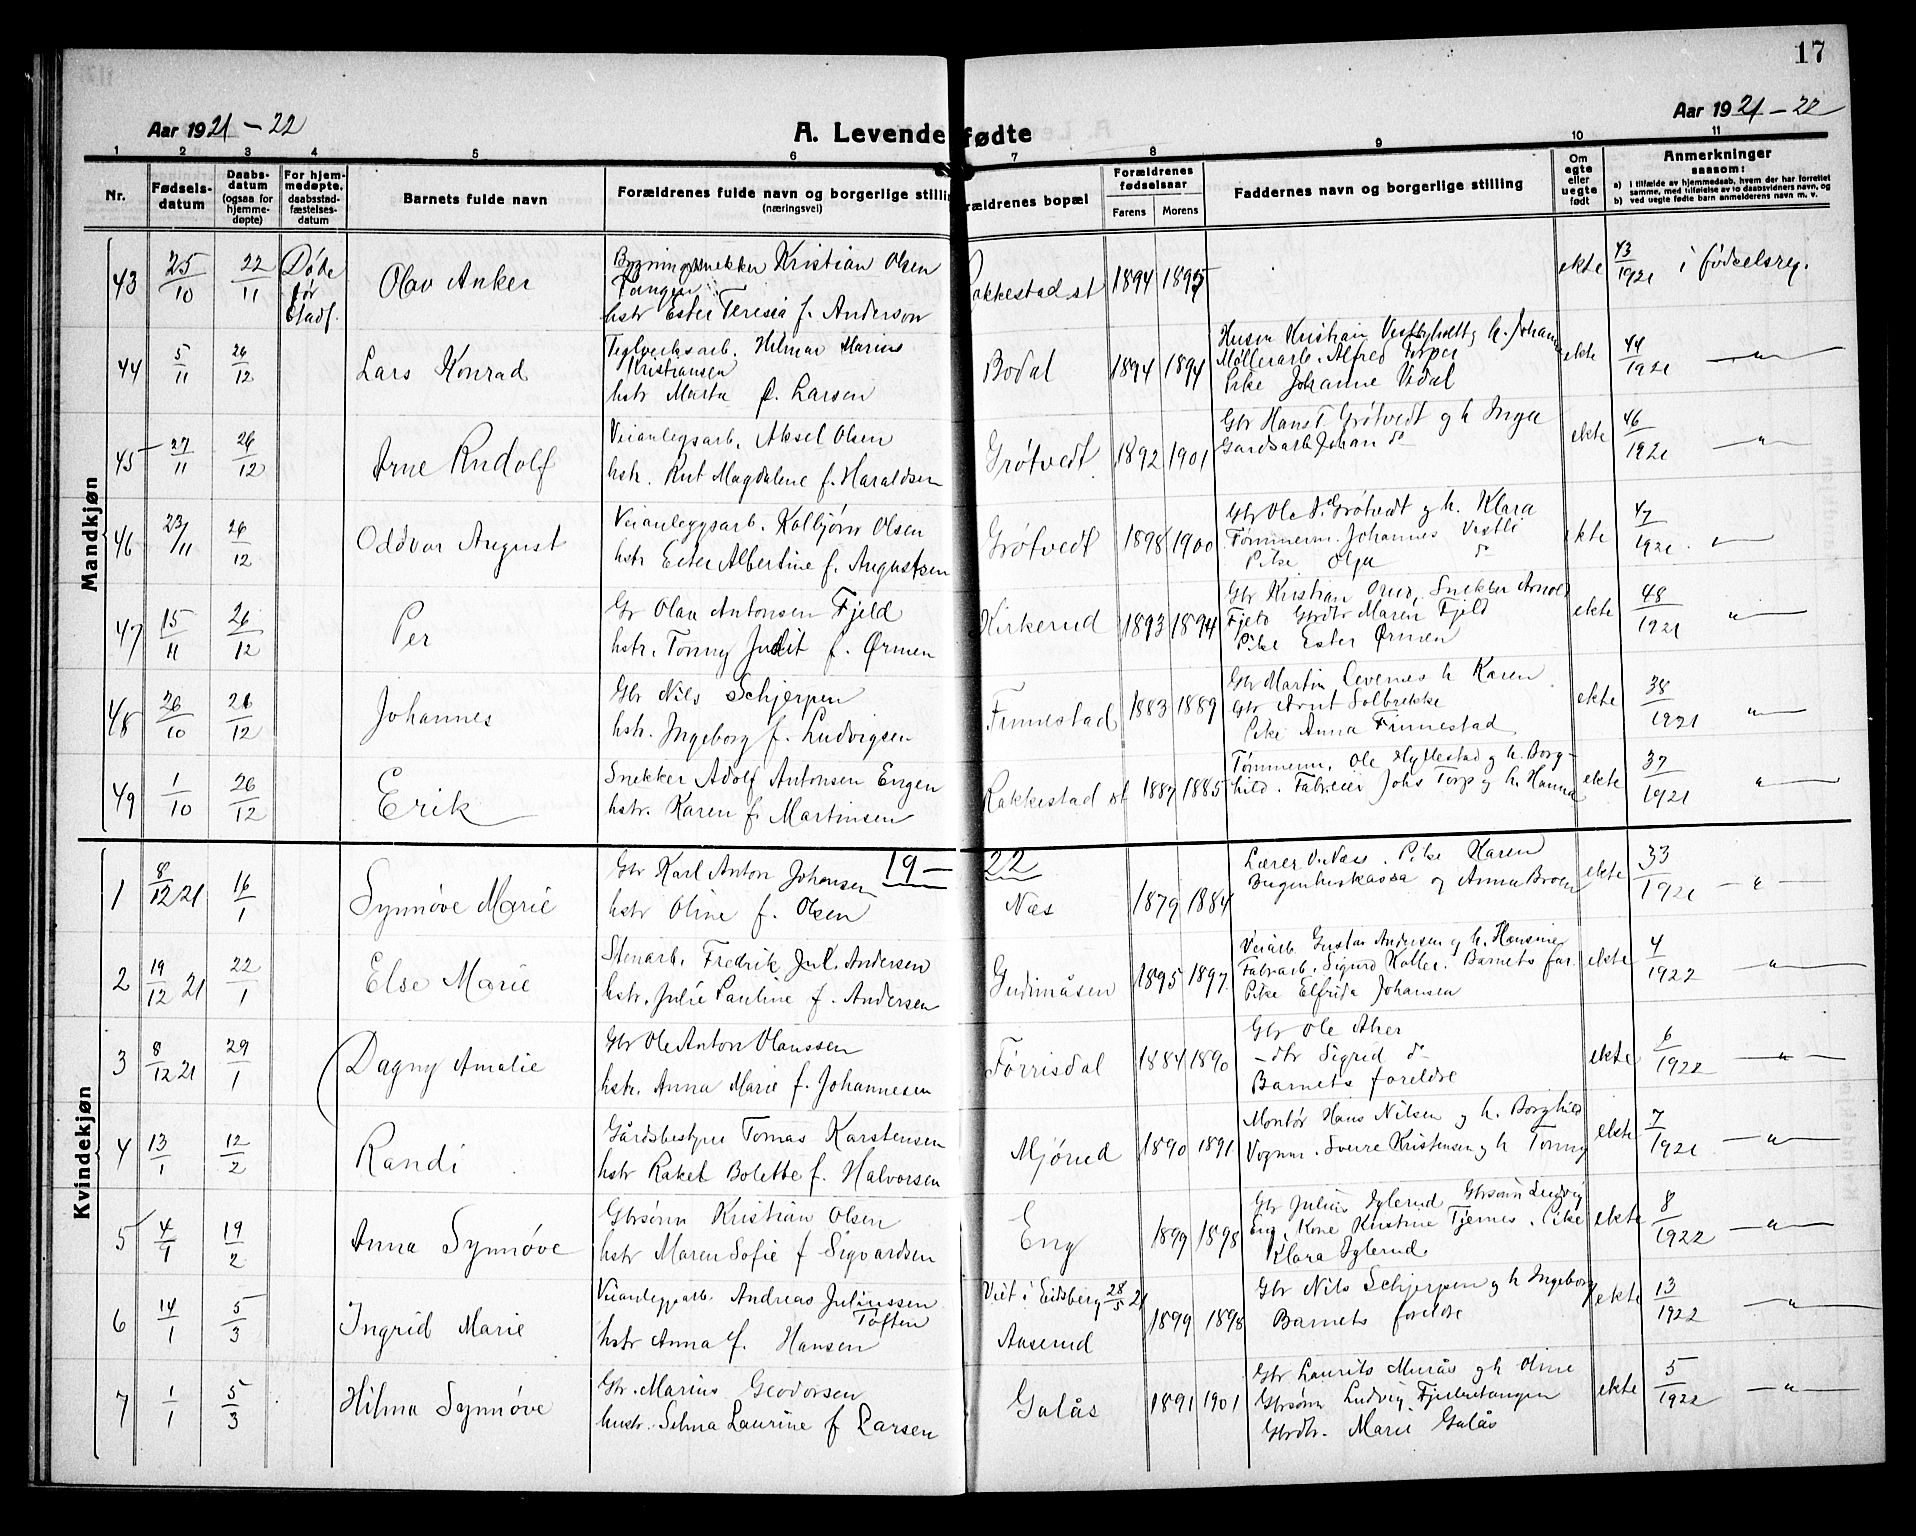 17
Aar 1921 – 22
A. Levende fødte
Aar 1921 – 22
1 2 3 4 5 6 7 8 9 10 11
Nr.
Fødsels-
datum
Daabs-
datum
(ogsaa for
hjemme-
døpte)
For hjem-
medøpte.
daabsstad-
fæstelses-
datum
Barnets fulde navn
Forældrenes fulde navn og borgerlige stilling
(næringsvei)
ældrenes bopæl
Forældrenes
fødselsaar
Farens Morens
Faddernes navn og borgerlige stilling
Om
egte
eller
uegte
født
Anmerkninger
saasom:
a) i tilfælde av hjemmedaab, hvem der har forrettet
samme, med tilføielse av to daabsvidners navn, og
b) ved uegte fødte barn anmelderens navn m. v.
Mandkjøn
43 25/10 22/11 Døde før stadf. Olav Anker
Bygningsnekker Kristian Olsen
Tangen
hstr Ester Teresia f. Anderson
Rakkestad st 1894 1895 ekte 43/1921 i fødselsreg.
44 5/11 26/12 Lars Konrad
Teglverksarb. Hilmar Marius
Kristiansen
hstr Marta f. Larsen
Bodal 1894 1894
Kristian h. Johanne
Møllerarb. Alfred
Pike Johanne
ekte 44/1921 – " –
45 27/11 26/12 Arne Rudolf
Veianlegsarb. Aksel Olsen
hstr. Rut Magdalene f. Haraldsen
Grøtvedt 1892 1901
Gbr Hans T Grøtvedt og h Inga
Gardsarb Johan do
ekte 46/1921 – " –
46 23/11 26/12 Oddvar August
Veianleggsarb. Kolbjørn Olsen
hstr Ester Albertine f. Augustsen
Grøtvedt 1898 1900
Gbr Ole Grøtvedt og h. Klara
Tømmerm. Johannes Vestli
Pike Olga do
ekte 47/1921 – " –
47 15/11 26/12 Per
Gbr Olav Antonsen Fjeld
hstr. Tonny Judit f. Ørmen
Kirkerud 1893 1894
Gbr Kristian Snekker Arnold
Fjeld Gbrdtr Maren Fjeld
Pike Ester Ørmen
ekte 48/1921 – " –
48 26/10 26/12 Johannes
Gbr Nils Schjerpen
hstr. Ingeborg f. Ludvigsen
Finnestad 1883 1889
Gbr Martin Levernes h Karen
Gbr Arnt Solbrekke
Pike Anna Finnestad
ekte 38/1921 – " –
49 1/10 26/12 Erik
Snekker Adolf Antonsen Engen
hstr. Karen f. Martinsen
Rakkestad st 1887 1885
Tømmerm. Ole Hyllestad og h. Borg-
hild. Fabreier Johs Torp og h. Hanna
ekte 37/1921 – " –
19 – 22
Kvindekjøn
1 8/12 21 16/1 Synnøve Marie
Gbr Karl Anton Johansen
hstr Oline f. Olsen
Næs 1879 1884
Lærer Næss. Pike Karen
og Anna
ekte 33/1921 – " –
2 19/12 21 22/1 Else Marie
Stenarb. Fredrik Jul. Andersen
hstr. Julie Pauline f. Andersen
Gudimåsen 1895 1897
Veiarb Gustav Andersen og h. Hansine
Fabrarb. Sigurd Koller. Barnets far
Pike Elfrida Johansen
ekte 4/1922 – " –
3 8/12 21 29/1 Dagny Amalie
Gbr Ole Anton Olaussen
hstr. Anna Marie f. Johannesen
Førrisdal 1884 1890
Gbr Ole Aker
– dtr Sigrid do
Barnets foreldre
ekte 6/1922 – " –
4 13/1 12/2 Randi
Gårdsbestyrer Tomas Karstensen
hstr Rakel Bolette f. Halvorsen
Mjørud 1890 1891
Montør Hans Nilsen og h. Borghild
Vognm. Sverre Kristensen og h Tonny
ekte 7/1921 – " –
5 4/1 19/2 Anna Synnøve
Gbrsønn Kristian Olsen
hstr Maren Sofie f Sigvardsen
Eng 1899 1898
Gbr Julius Gbrsønn Ludvig
Eng. Kone Kristine Tjernes. Pike
Klara
ekte 8/1922 – " –
6 14/1 5/3 Ingrid Marie
Veianleggsarb. Andreas Juliussen
Toften
hstr Anna f. Hansen
Viet i Eidsberg 28/5 21
Aaserud 1899 1898
Gbr Nils Schjerpen og h Ingeborg
Barnets foreldre
ekte 13/1922 – " –
7 1/1 5/3 Hilma Synnøve
Gbr. Marius Geodorsen
hustr. Selma Laurine f Larsen
Galås 1891 1901
Gbr Laurits Murås og h Oline
Gbrsønn Ludvig
Gbrdtr. Marie Galås
ekte 5/1922 – " –